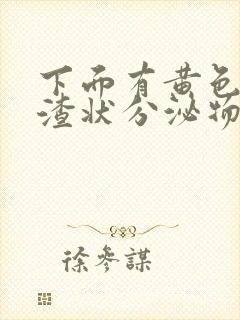 下面有黄色
渣状分泌物
徐參謀